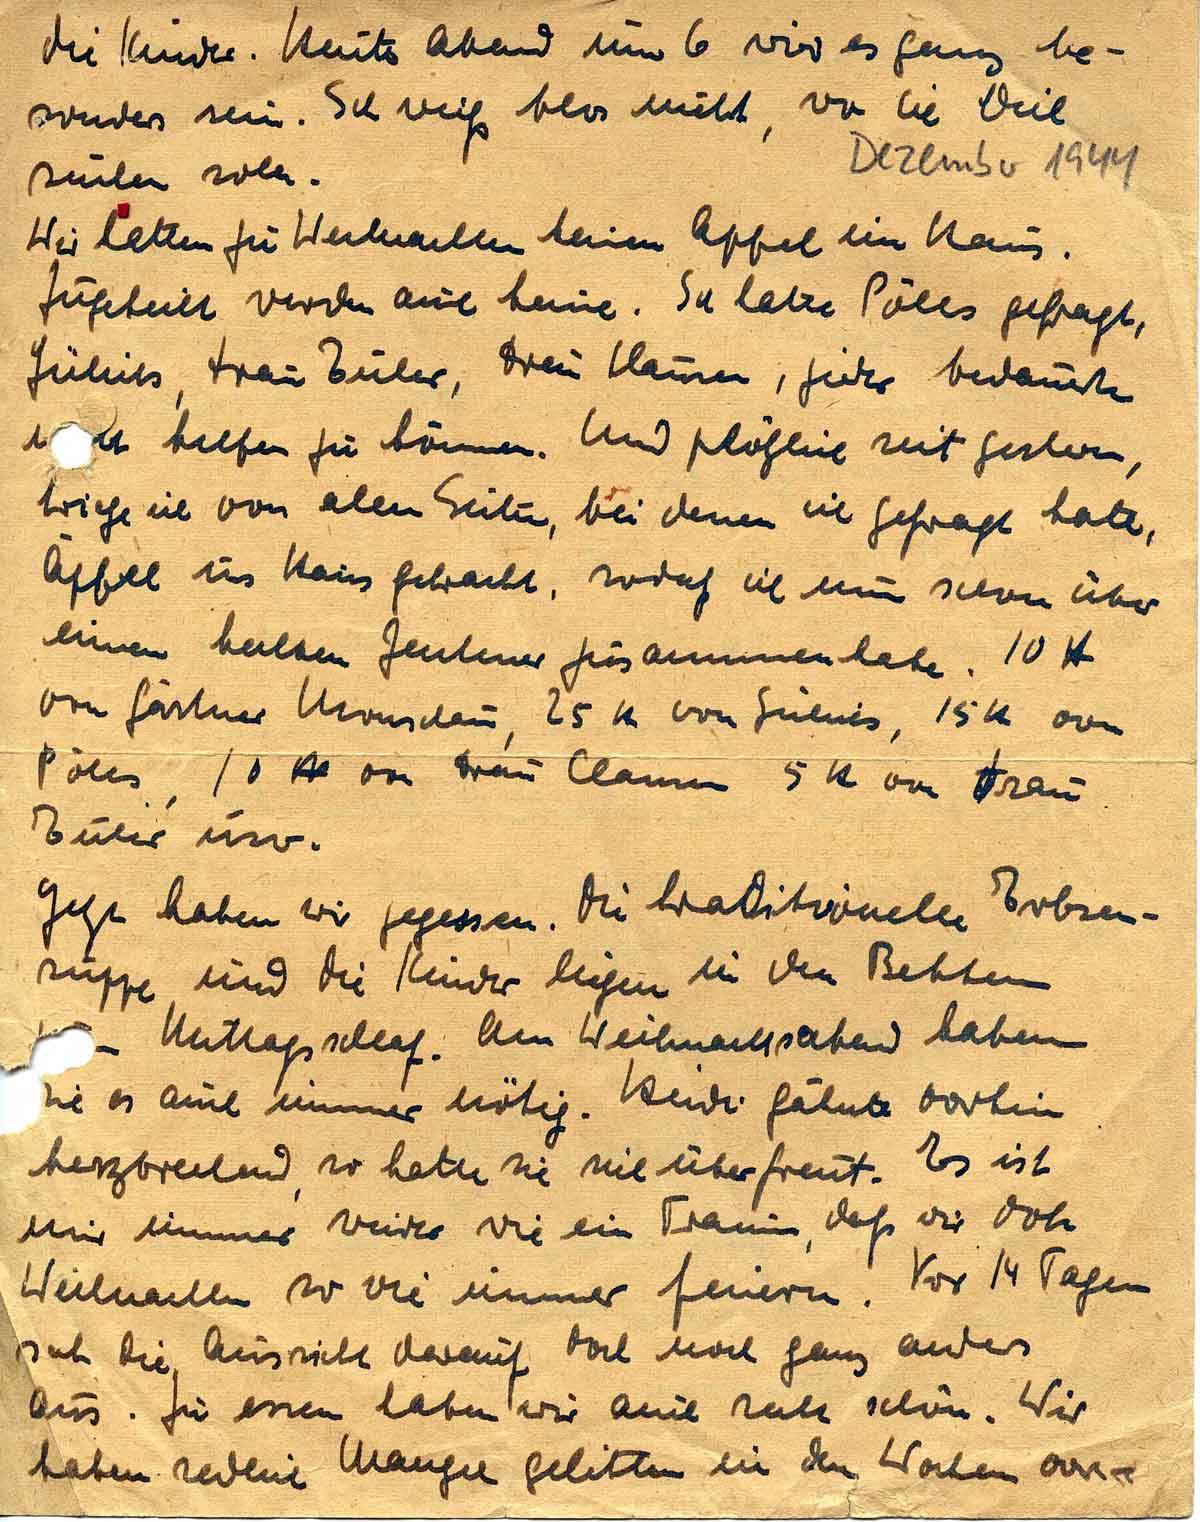 die Kinder. Heute Abend um 6 wird es ganz be-
sonders sein. Ich weiß blos nicht, wo ich Dich
suchen soll.
Dezember 1944
Wir hatten zu Weihnachten keinen Apfel im Haus.
Zugeteilt werden auch keine. Ich hatte Pöles gefragt,
Frau Euler, Frau Clausen, jeder bedauerte
helfen zu können. Und plötzlich seit gestern,
kriege ich von allen Seiten, bei denen ich gefragt hatte,
Äpfel ins Haus gebracht, sodaß ich nun schon über
einen halben Zentner zusammenhabe. 10 ℔
von Gärtner 25 ℔ von 15 ℔ von
Pöles, 10 ℔ von Frau Clausen 5 ℔ von Frau
Euler usw.
Jetzt haben wir gegessen. Die traditionelle Erbsen-
suppe und die Kinder liegen in den Betten
Mittagsschlaf. Am Weihnachtsabend haben
sie es auch immer nötig. Heidi gähnte vorhin
herzbrechend, so hatte sie sich überfreut. Es ist
mir immer wieder wie ein Traum, daß wir doch
Weihnachten so wie immer feiern. Vor 14 Tagen
sah die Aussicht darauf doch noch ganz anders
aus. Zu essen haben wir auch recht schön. Wir
haben redlich Mangel gelitten in den Wochen vor-